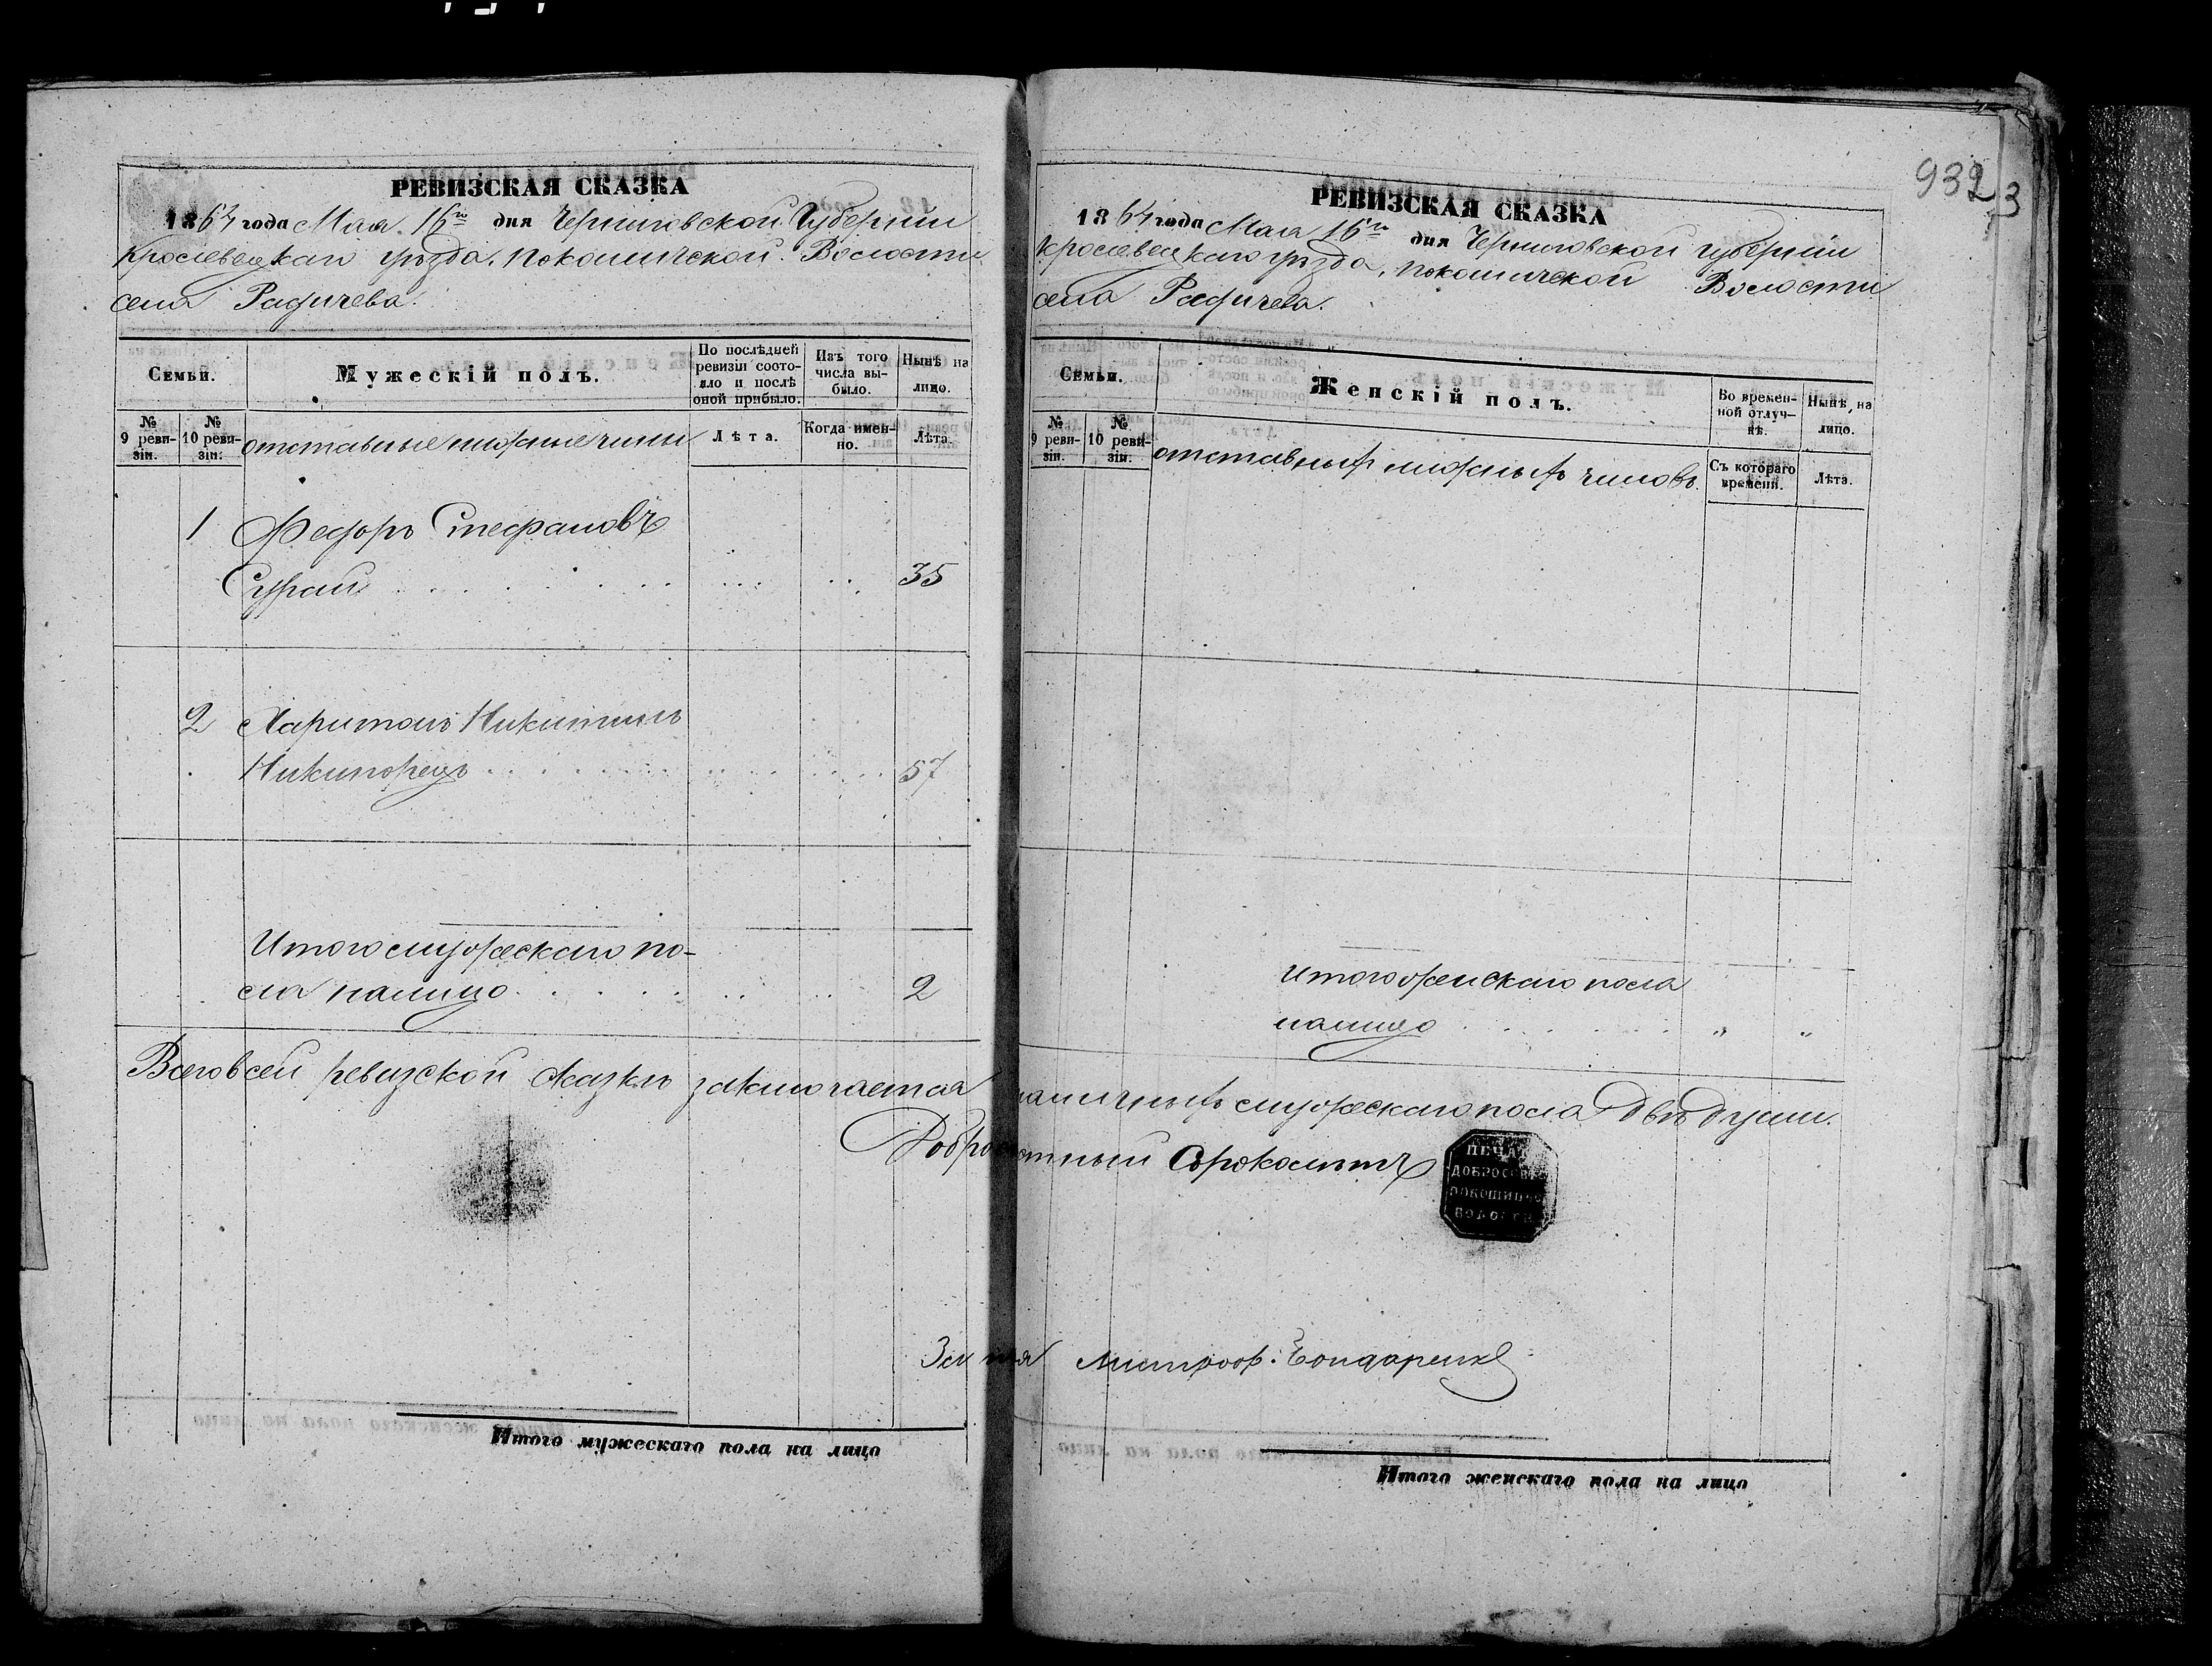 РЕВИЗСКАЯ СКАЗКА
1864 года Мая 16го дня Черниговской Губерніи
Кролевецкаго уѣзда, Покошичской Волости
села Радичева.
Семьи.
Мужескій полъ.
По послѣдней ревизіи состояло и послѣ оной прибыло.
Изъ того числа выбыло.
Нынѣ на лицо.
№ 9 ревизіи.
№ 10 ревизіи.
отставные нижние чины
Лѣта.
Когда именно.
Лѣта.
1 Федоръ Стефановъ
Сурай 35
2 Харитонъ Никитинъ
Никипорецъ 57
Итого мужескаго по-
ла налицо 2
Итого мужескаго пола на лицо
932
3
РЕВИЗСКАЯ СКАЗКА
1864 года Мая 16го дня Черниговской губерніи
Кролевецкаго уѣзда, Покошичской Волости
села Радичева.
Семьи.
Женскій полъ.
Во временной отлучкѣ.
Нынѣ на лицо.
№ 9 ревизіи.
№ 10 ревизіи.
отставныхъ нижныхъ чиновъ.
Съ котораго времени.
Лѣта.
Итого женскаго пола
налицо „ „
Всего в сей ревизской сказкѣ заключается наличныхъ мужескаго пола двѣ души.
Добросовѣстный Сороколѣтъ
ПЕЧАТ
ДОБРОСОВѢ
ПОКОШИЧС
ВОЛОСТИ
Митроф. Бондаренко
Итого женскаго пола на лицо